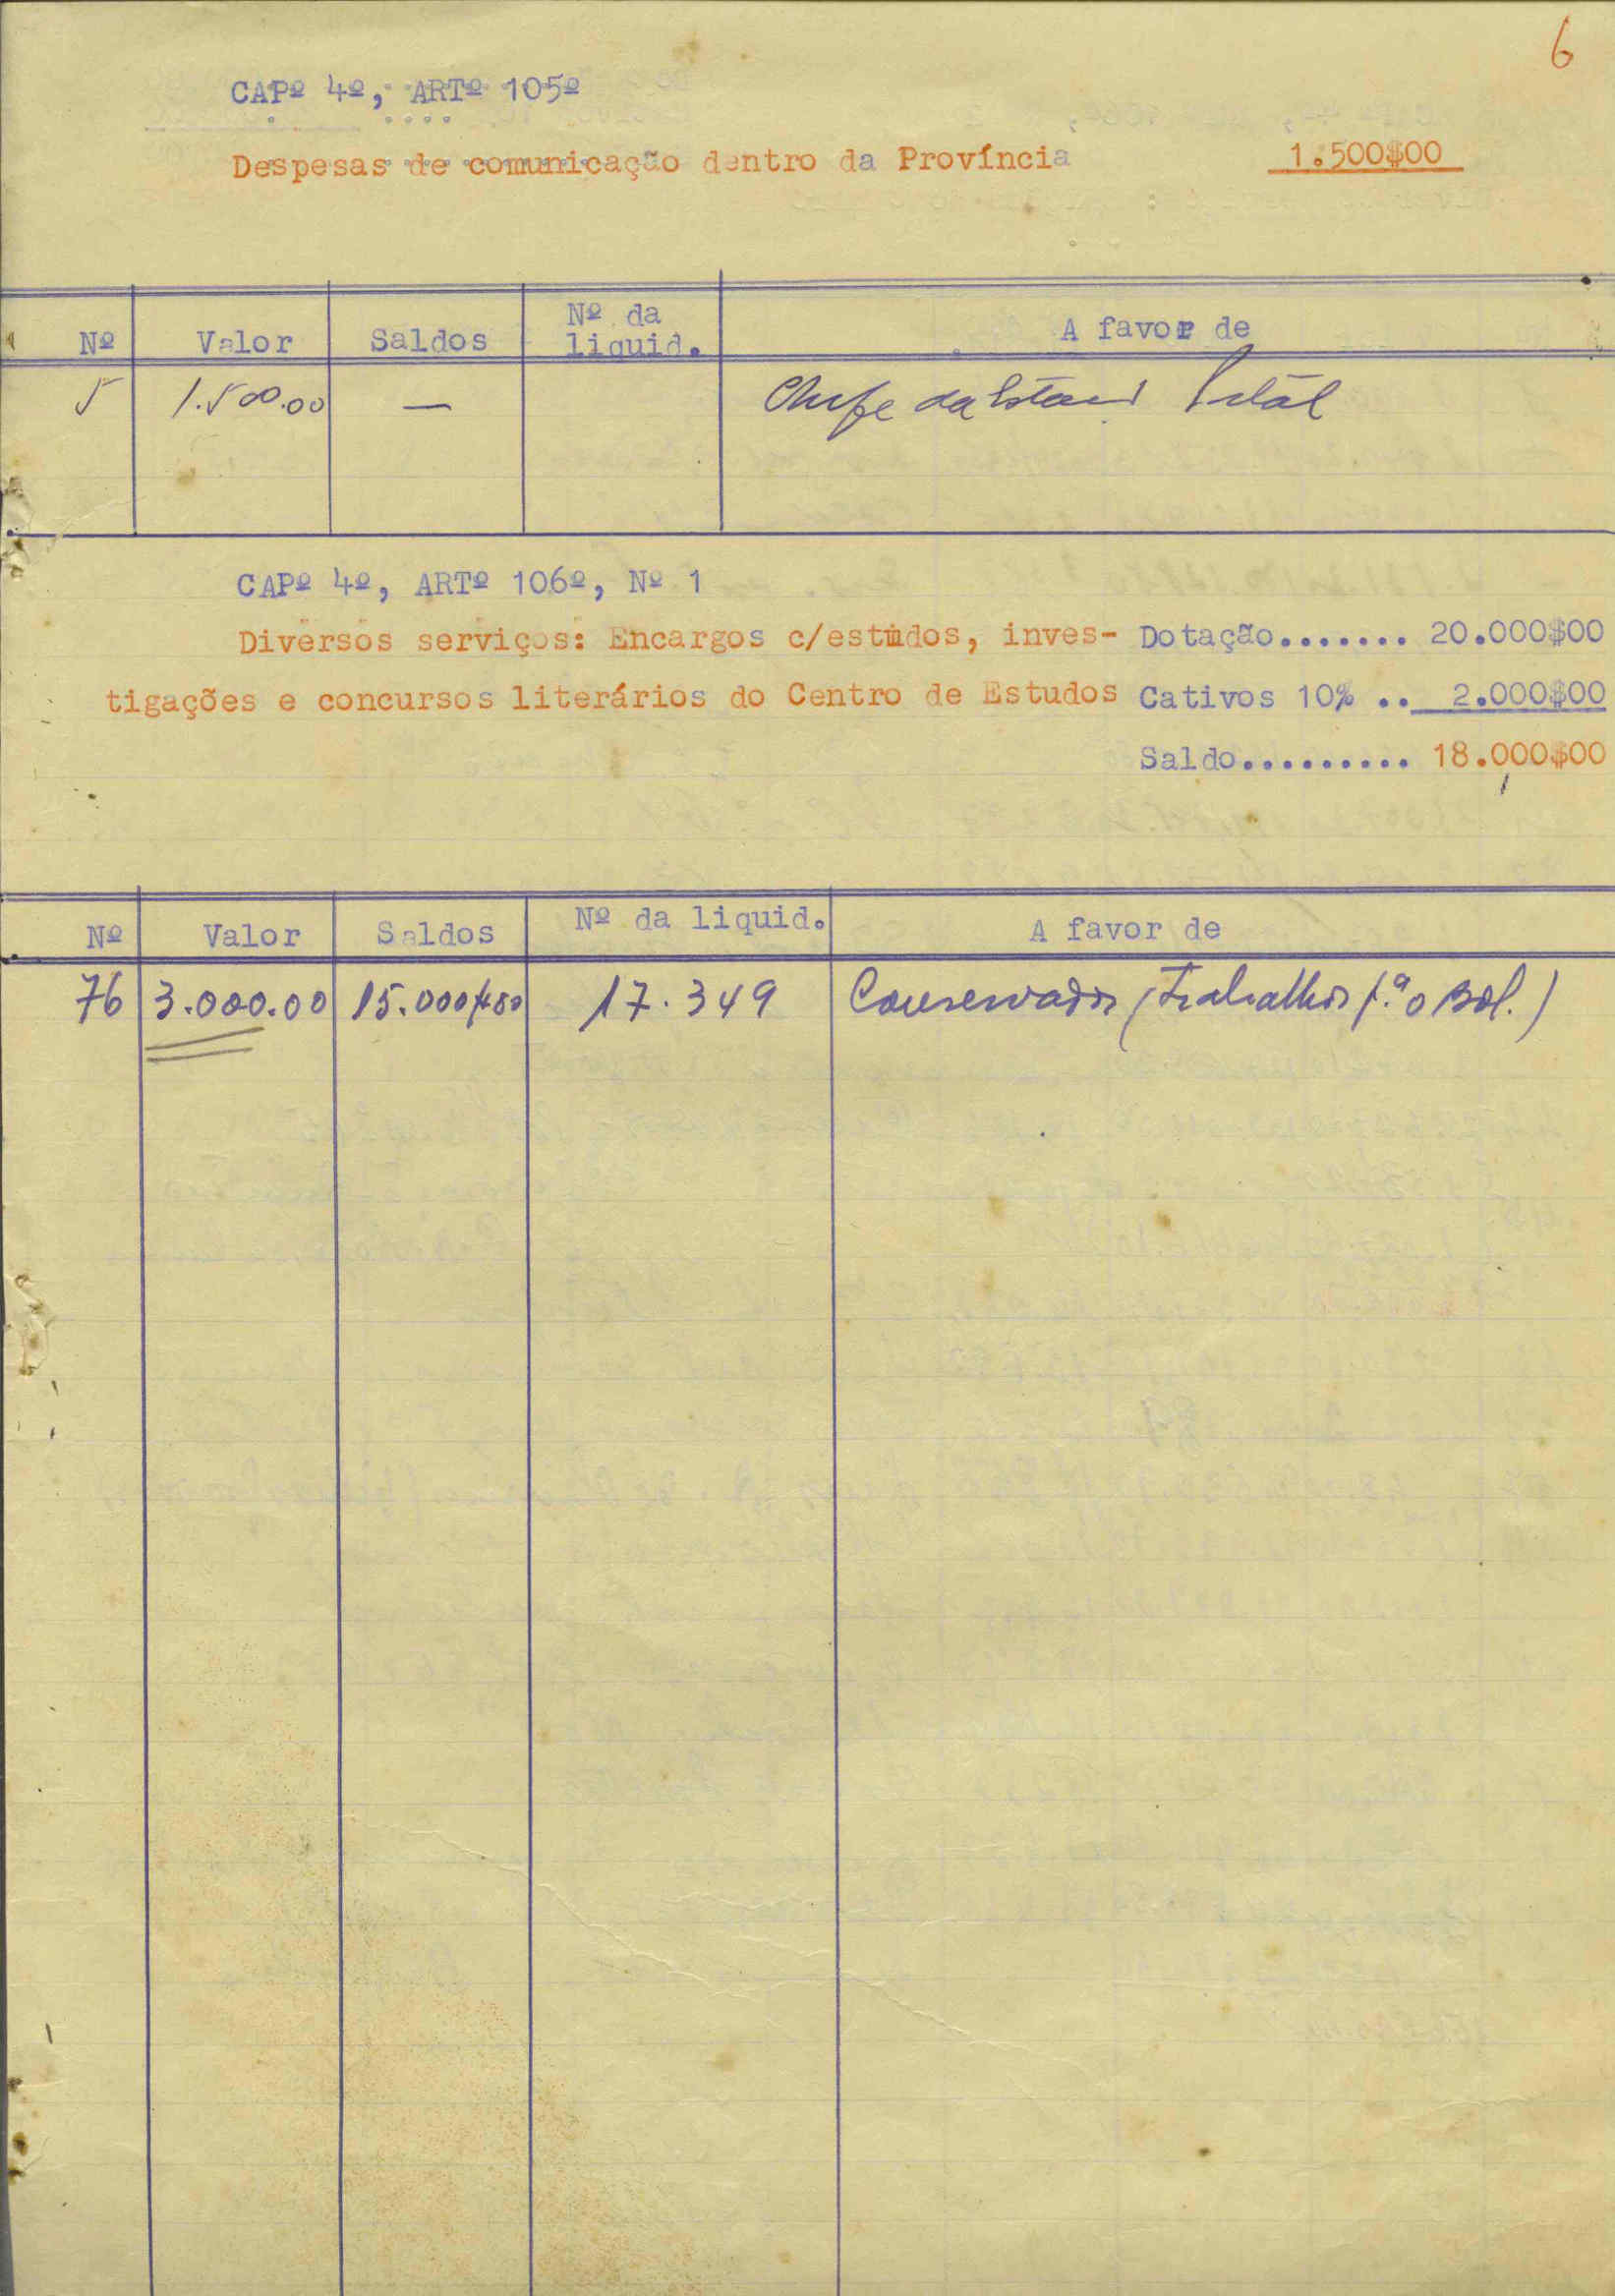 6
CAPº 4º, ARTº 105º
Despesas de comunicação dentro da Província 1.500$00
Nº Valor Saldos Nº da liquid. A favor de
5 1.500.00 — Chefe da Postal
CAPº 4º, ARTº 106º, Nº 1
Diversos serviços: Encargos c/estudos, inves- Dotação....... 20.000$00
tigações e concursos literários do Centro de Estudos Cativos 10% .. 2.000$00
Saldo.......... 18.000$00
Nº Valor Saldos Nº da liquid. A favor de
76 3.000.00 15.000$00 17.349 Conservador (Trabalhos p.ª o Bol.)